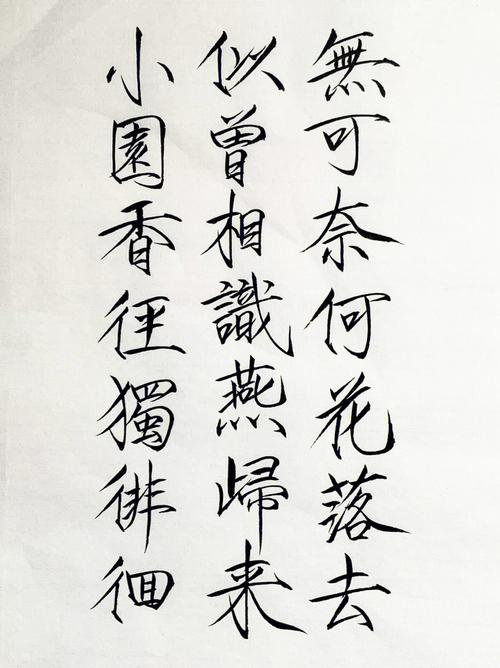 無可奈何花落去
似曾相識燕歸来
小園香徑獨徘徊